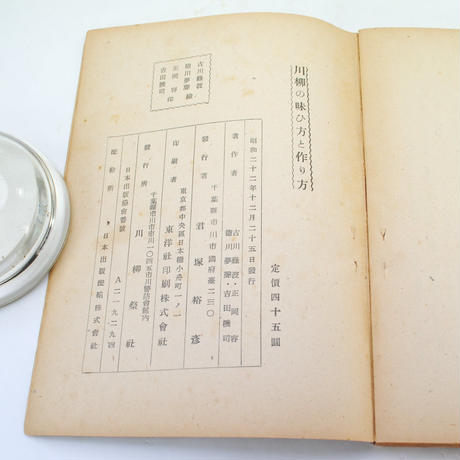 川柳の味ひ方と作り方
古川綠波
德川夢聲
正岡容
吉田機司
昭和二十二年十二月二十五日發行
定價四十五圓
著作者
古川綠波・正岡容
德川夢聲・吉田機司
千葉縣市川市國府臺二三〇
發行者 君塚裕彥
東京都中央區日本橋小舟町一ノ一
印刷者 東洋社印刷株式會社
千葉縣市川市市川一〇四五市川警防會館內
發行所 川柳祭社
日本出版協會番號 A二一九二九四
配給所 日本出版配給株式會社